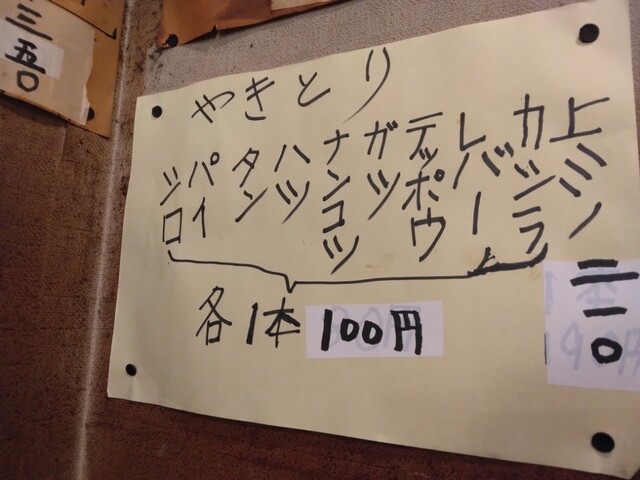 やきとり
上ミノ
二一〇
カシラ
レバー
テッポウ
ガツ
ナンコツ
ハツ
タン
パイ
シロ
各1本 100円
三五〇